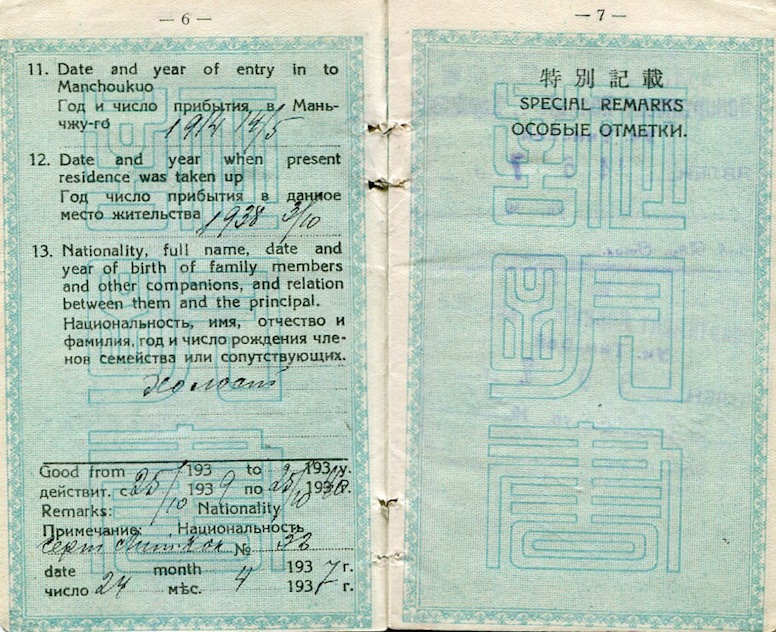 — 6 —
11. Date and year of entry in to
Manchoukuo
Год и число прибытия в Мань-
чжу-го 1914 14/5
12. Date and year when present
residence was taken up
Год число прибытия в данное
место жительства 1938 3/10
13. Nationality, full name, date and
year of birth of family members
and other companions, and relation
between them and the principal.
Национальность, имя, отчество и
фамилия, год и число рождения чле-
нов семейства или сопутствующих.
Холост
Good from 193 to 193 y.
действит. с 25/10 193 9 по 25/10 19 г.
Remarks: Nationality
Примечание: Национальность
серт № 32
date month 193 7 г.
число 24 мѣс. 4 193 7 г.
— 7 —
特別記載
SPECIAL REMARKS
ОСОБЫЕ ОТМЕТКИ.